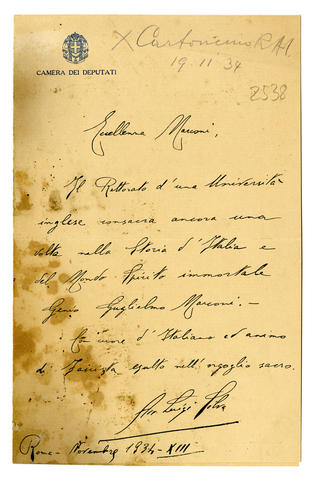 CAMERA DEI DEPUTATI
X Cartoncino R.A.I.
19.11.34
2538
Eccellenza Marconi,
Il Rettorato d'una Università
inglese consacra ancora una
volta nella Storia d'Italia e
del Mondo Spirito immortale
Genio Guglielmo Marconi. -
Con cuore d'Italiano ed animo
di Fascista esulto nell'orgoglio sacro.
Luigi
Roma - Novembre 1934 - XIII